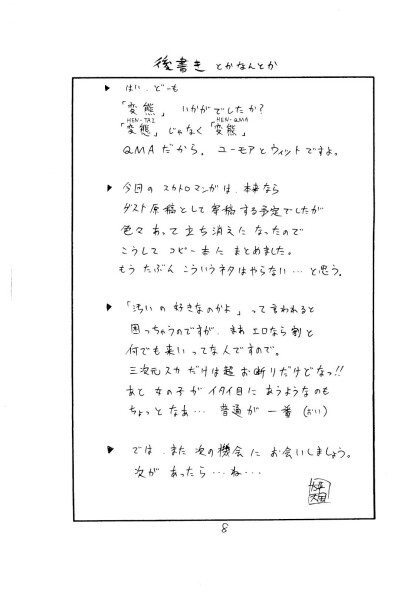 後書き とかなんとか
▶ はい、どーも
「変熊」いかがでしたか?
HEN-TAI HEN-QMA
「変態」じゃなく「変熊」
QMAだから。ユーモアとウィットですよ。
▶ 今回の スカトロマンガは、本来なら
ゲスト原稿として寄稿する予定でしたが
色々あって立ち消えになったので
こうして コピー本に まとめました。
もう たぶん こういうネタはやらない…と思う。
▶ 「汚いの好きなのかよ」って言われると
困っちゃうのですが、まあ エロなら割と
何でも来いってなんですので。
三次元スカだけは超お断りだけどなっ!!
あと 女の子が イタイ目にあうようなのも
ちょっとなあ… 普通が一番 (おい)
▶ では、また次の機会に お会いしましょう。
次が あったら…ね…
8